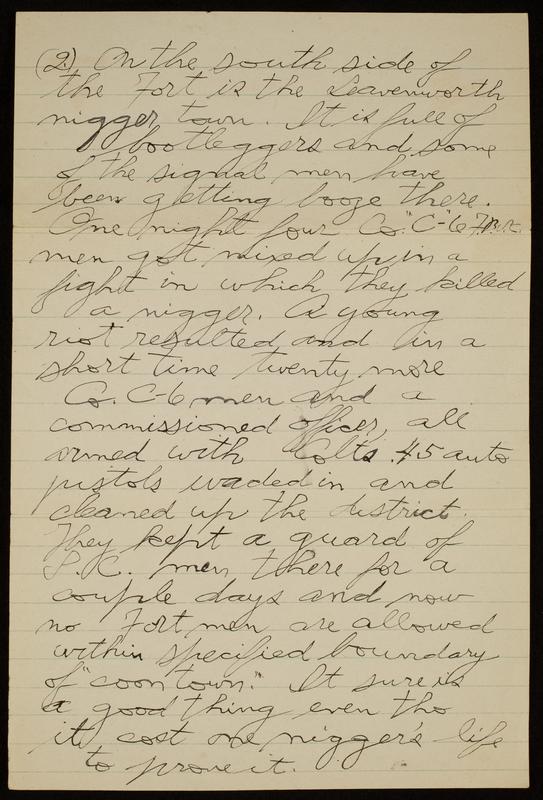 (2) On the south side of
the Fort is the Leavenworth
nigger town. It is full of
bootleggers and some
of the signal men have
been getting booze there.
One night four Co. "C-6 F.B.N.
men got mixed up in a
fight in which they killed
a nigger. A young
riot resulted and in a
short time twenty more
Co. C-6 men and a
commissioned officer, all
armed with Colts .45 auto
pistols waded in and
cleaned up the district.
They kept a guard of
S.C. men there for a
couple days and now
no Fort men are allowed
within specified boundary
of "coon town." It sure is
a good thing even tho
it cost one nigger's life
to prove it.